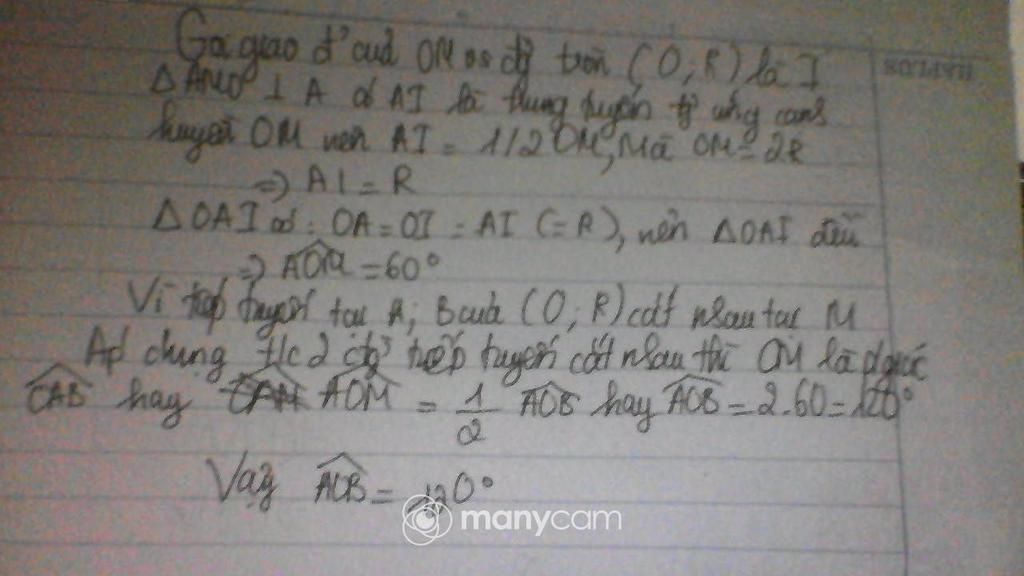 Gọi giao đ' của OM và đg tròn (O; R) là I
ΔAMO ⊥ A có AI là trung tuyến tg ứng cạnh
huyền OM nên AI = 1/2 OM, Mà OM = 2R
=) AI = R
ΔOAI có: OA = OI = AI (= R), nên ΔOAI đều
=) AOM = 60°
Vì tiếp tuyến tại A; B của (O; R) cắt nhau tại M
Áp dụng t/c 2 tiếp tuyến cắt nhau thì OM là pgiác
CAB hay AOM = 1/2 AOB hay AOB = 2.60 = 120°
Vậy AOB = 120°
manycam
HAPPLUS